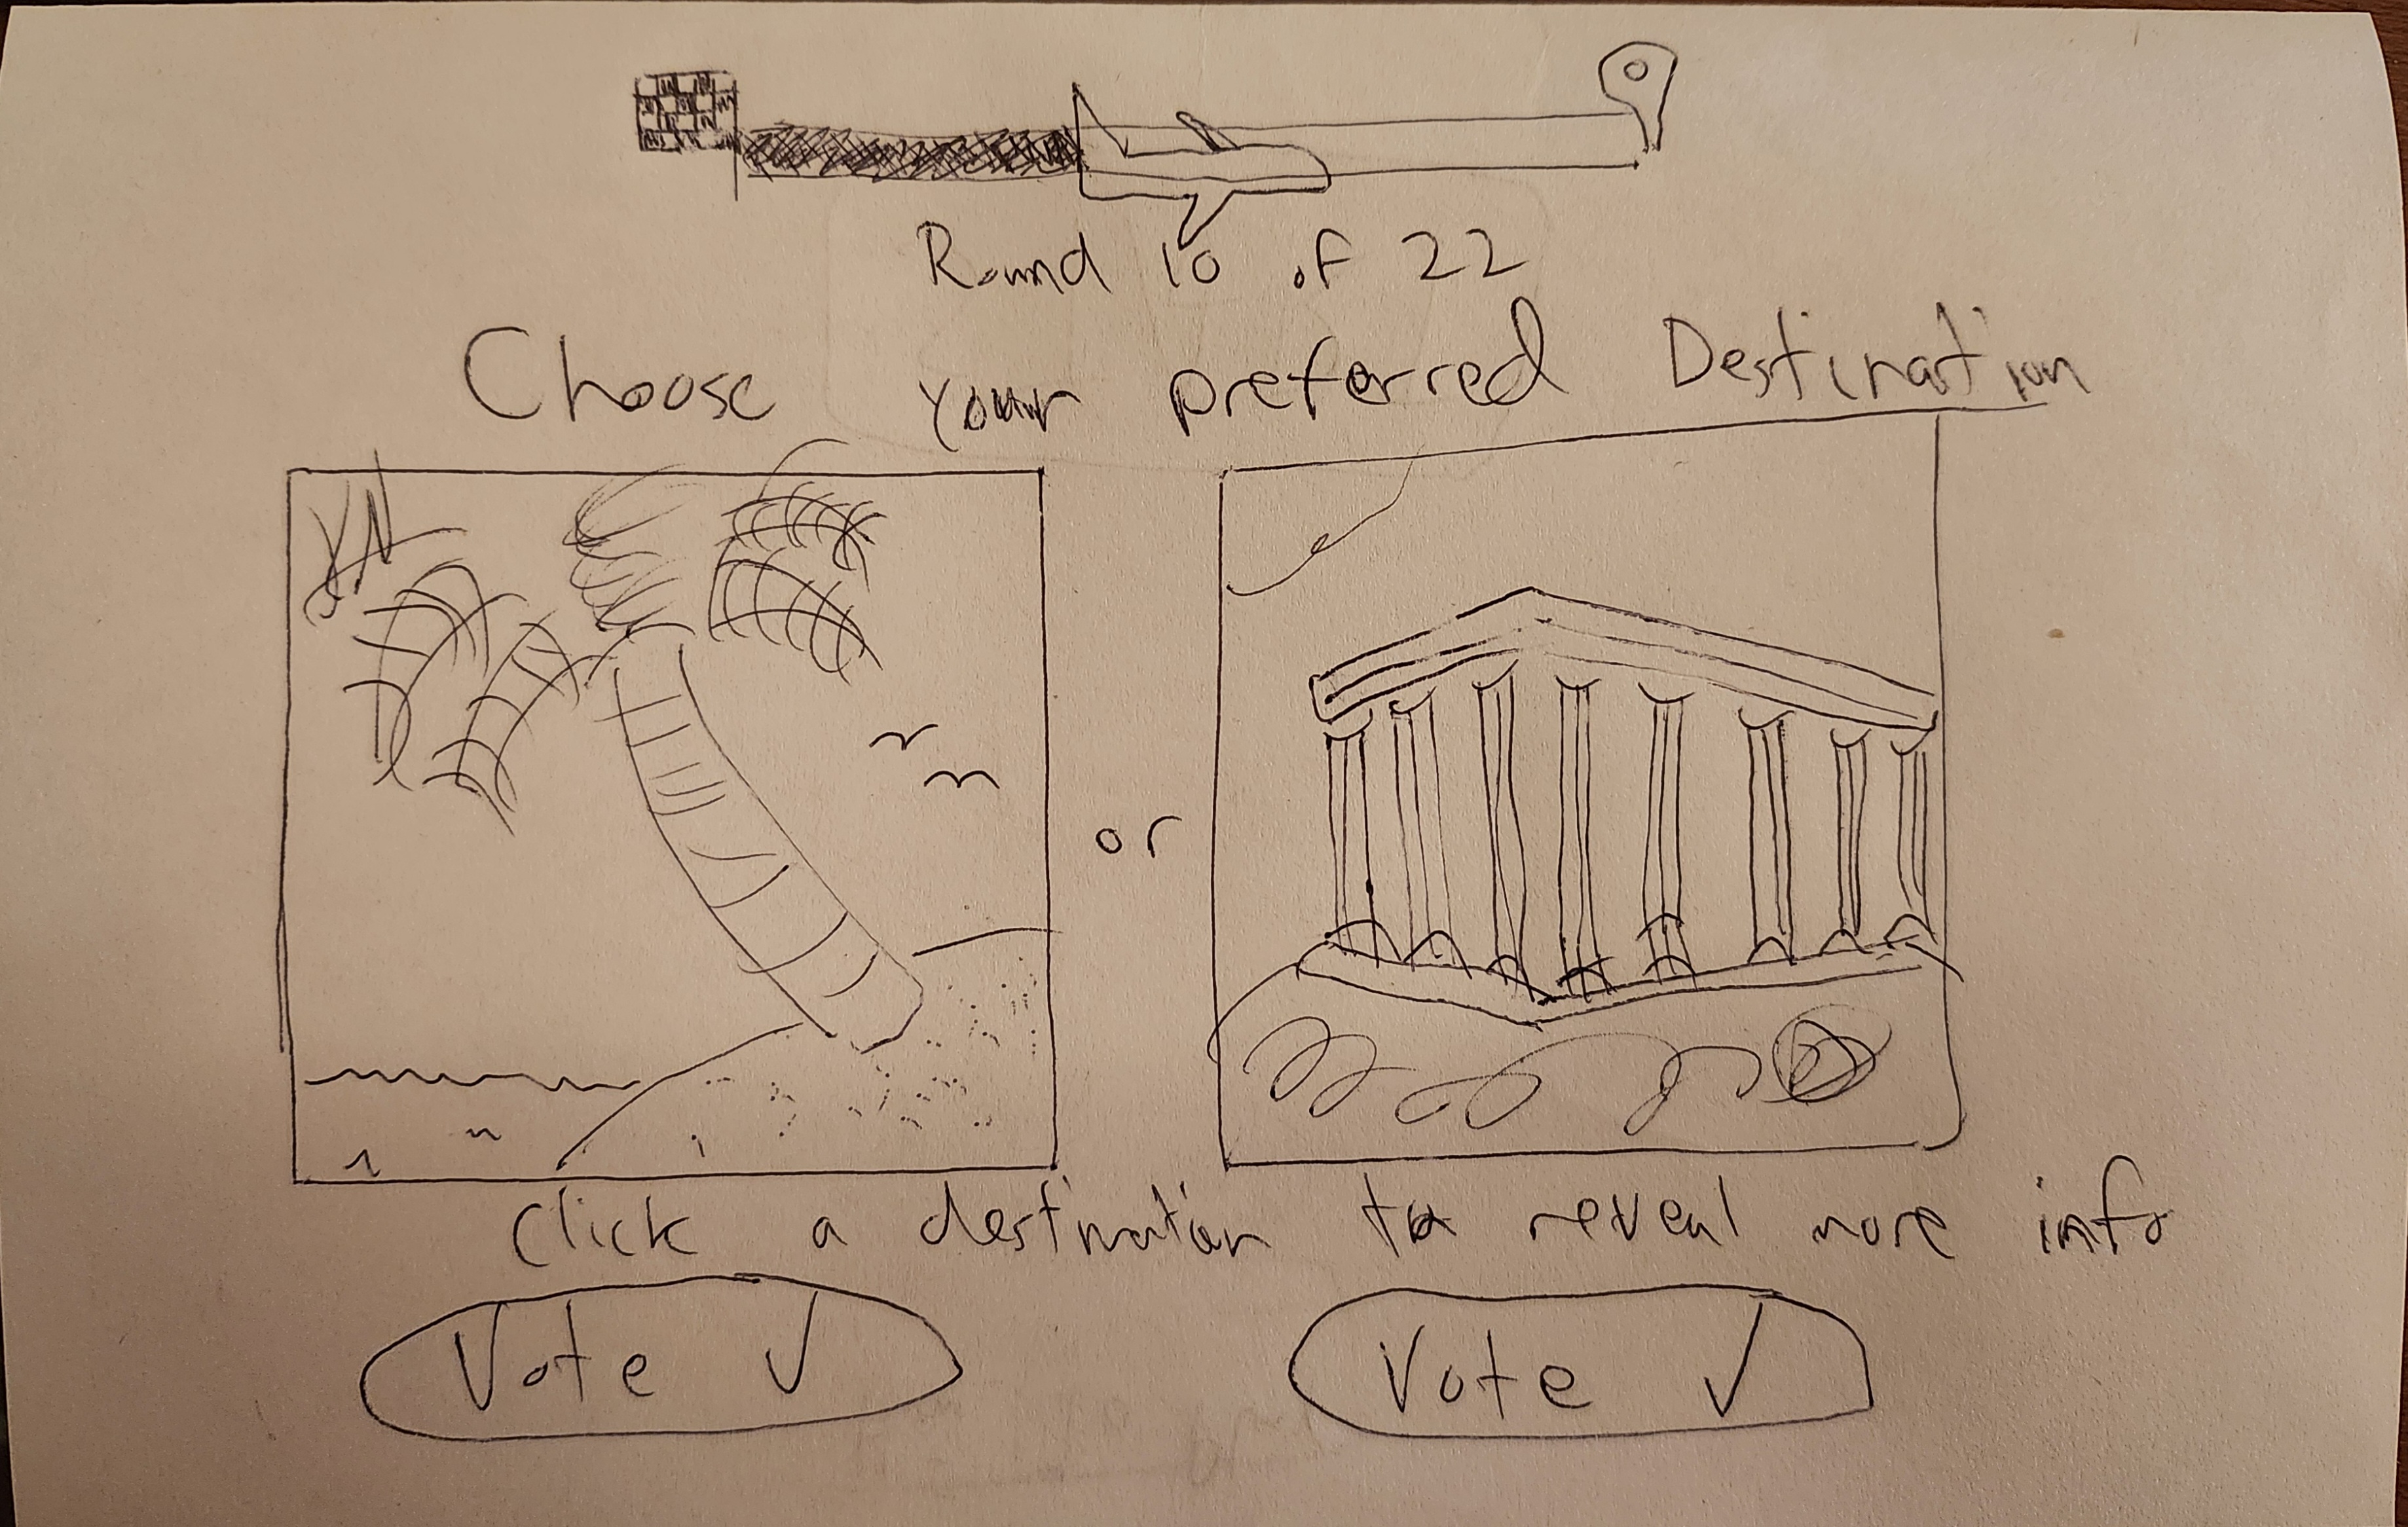 Round 10 of 22
Choose your preferred Destination
or
Click a destination to reveal more info
Vote ✓
Vote ✓